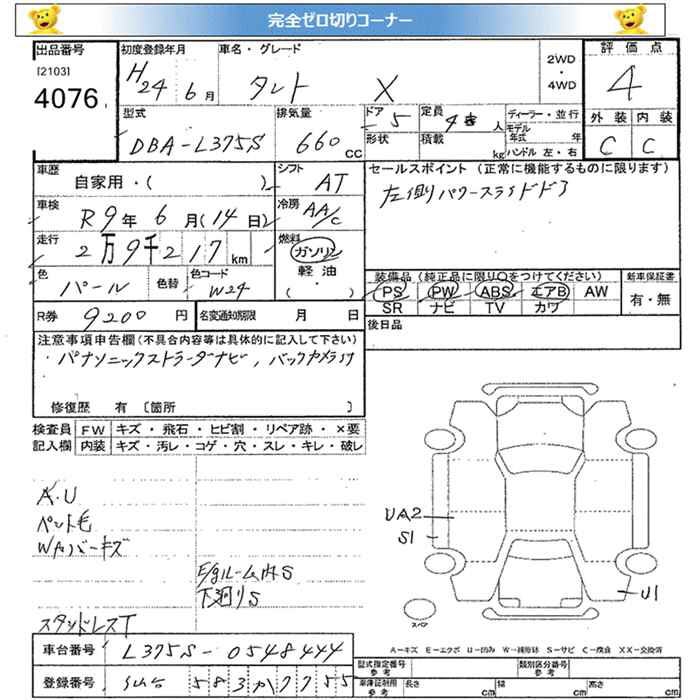 完全ゼロ切りコーナー
出品番号
[2103]
4076
初度登録年月
H24 6月
車名・グレード
タント X
2WD
・
4WD
評価点
4
型式
DBA-L375S
排気量
660 cc
ドア
5
形状
定員
4 人
積載
kg
ディーラー・並行
モデル年式 年
ハンドル 左・右
外装 内装
C C
車歴
自家用・( )
シフト
AT
セールスポイント(正常に機能するものに限ります)
左側パワースライドドア
車検
R9年 6月(14日)
冷房
AA/C
走行
2万9千217km
燃料
ガソリン
軽油
(・)
色
パール
色替
色コード
W24
装備品(純正品に限り○をつけてください)
PS PW ABS エアB AW
SR ナビ TV カワ
新車保証書
有・無
R券
9200円
名変通知期限 月 日
後日品
注意事項申告欄(不具合内容等は具体的に記入して下さい)
・パナソニックストラーダナビ,バックカメラ付
修復歴 有〔箇所 〕
検査員 FW キズ・飛石・ヒビ割・リペア跡・×要
記入欄 内装 キズ・汚レ・コゲ・穴・スレ・キレ・破レ
A.U
ペット毛
E/gルーム内S
下廻りS
スタッドレスT
UA2
S1
U1
スペア
A=キズ E=エクボ U=凹み W=補修跡 S=サビ C=腐食 XX=交換済
車台番号 L375S-0548444
登録番号 583か7755
型式指定番号 参考
類別区分番号 参考
車庫証明用 参考 長さ cm 幅 cm 高さ cm